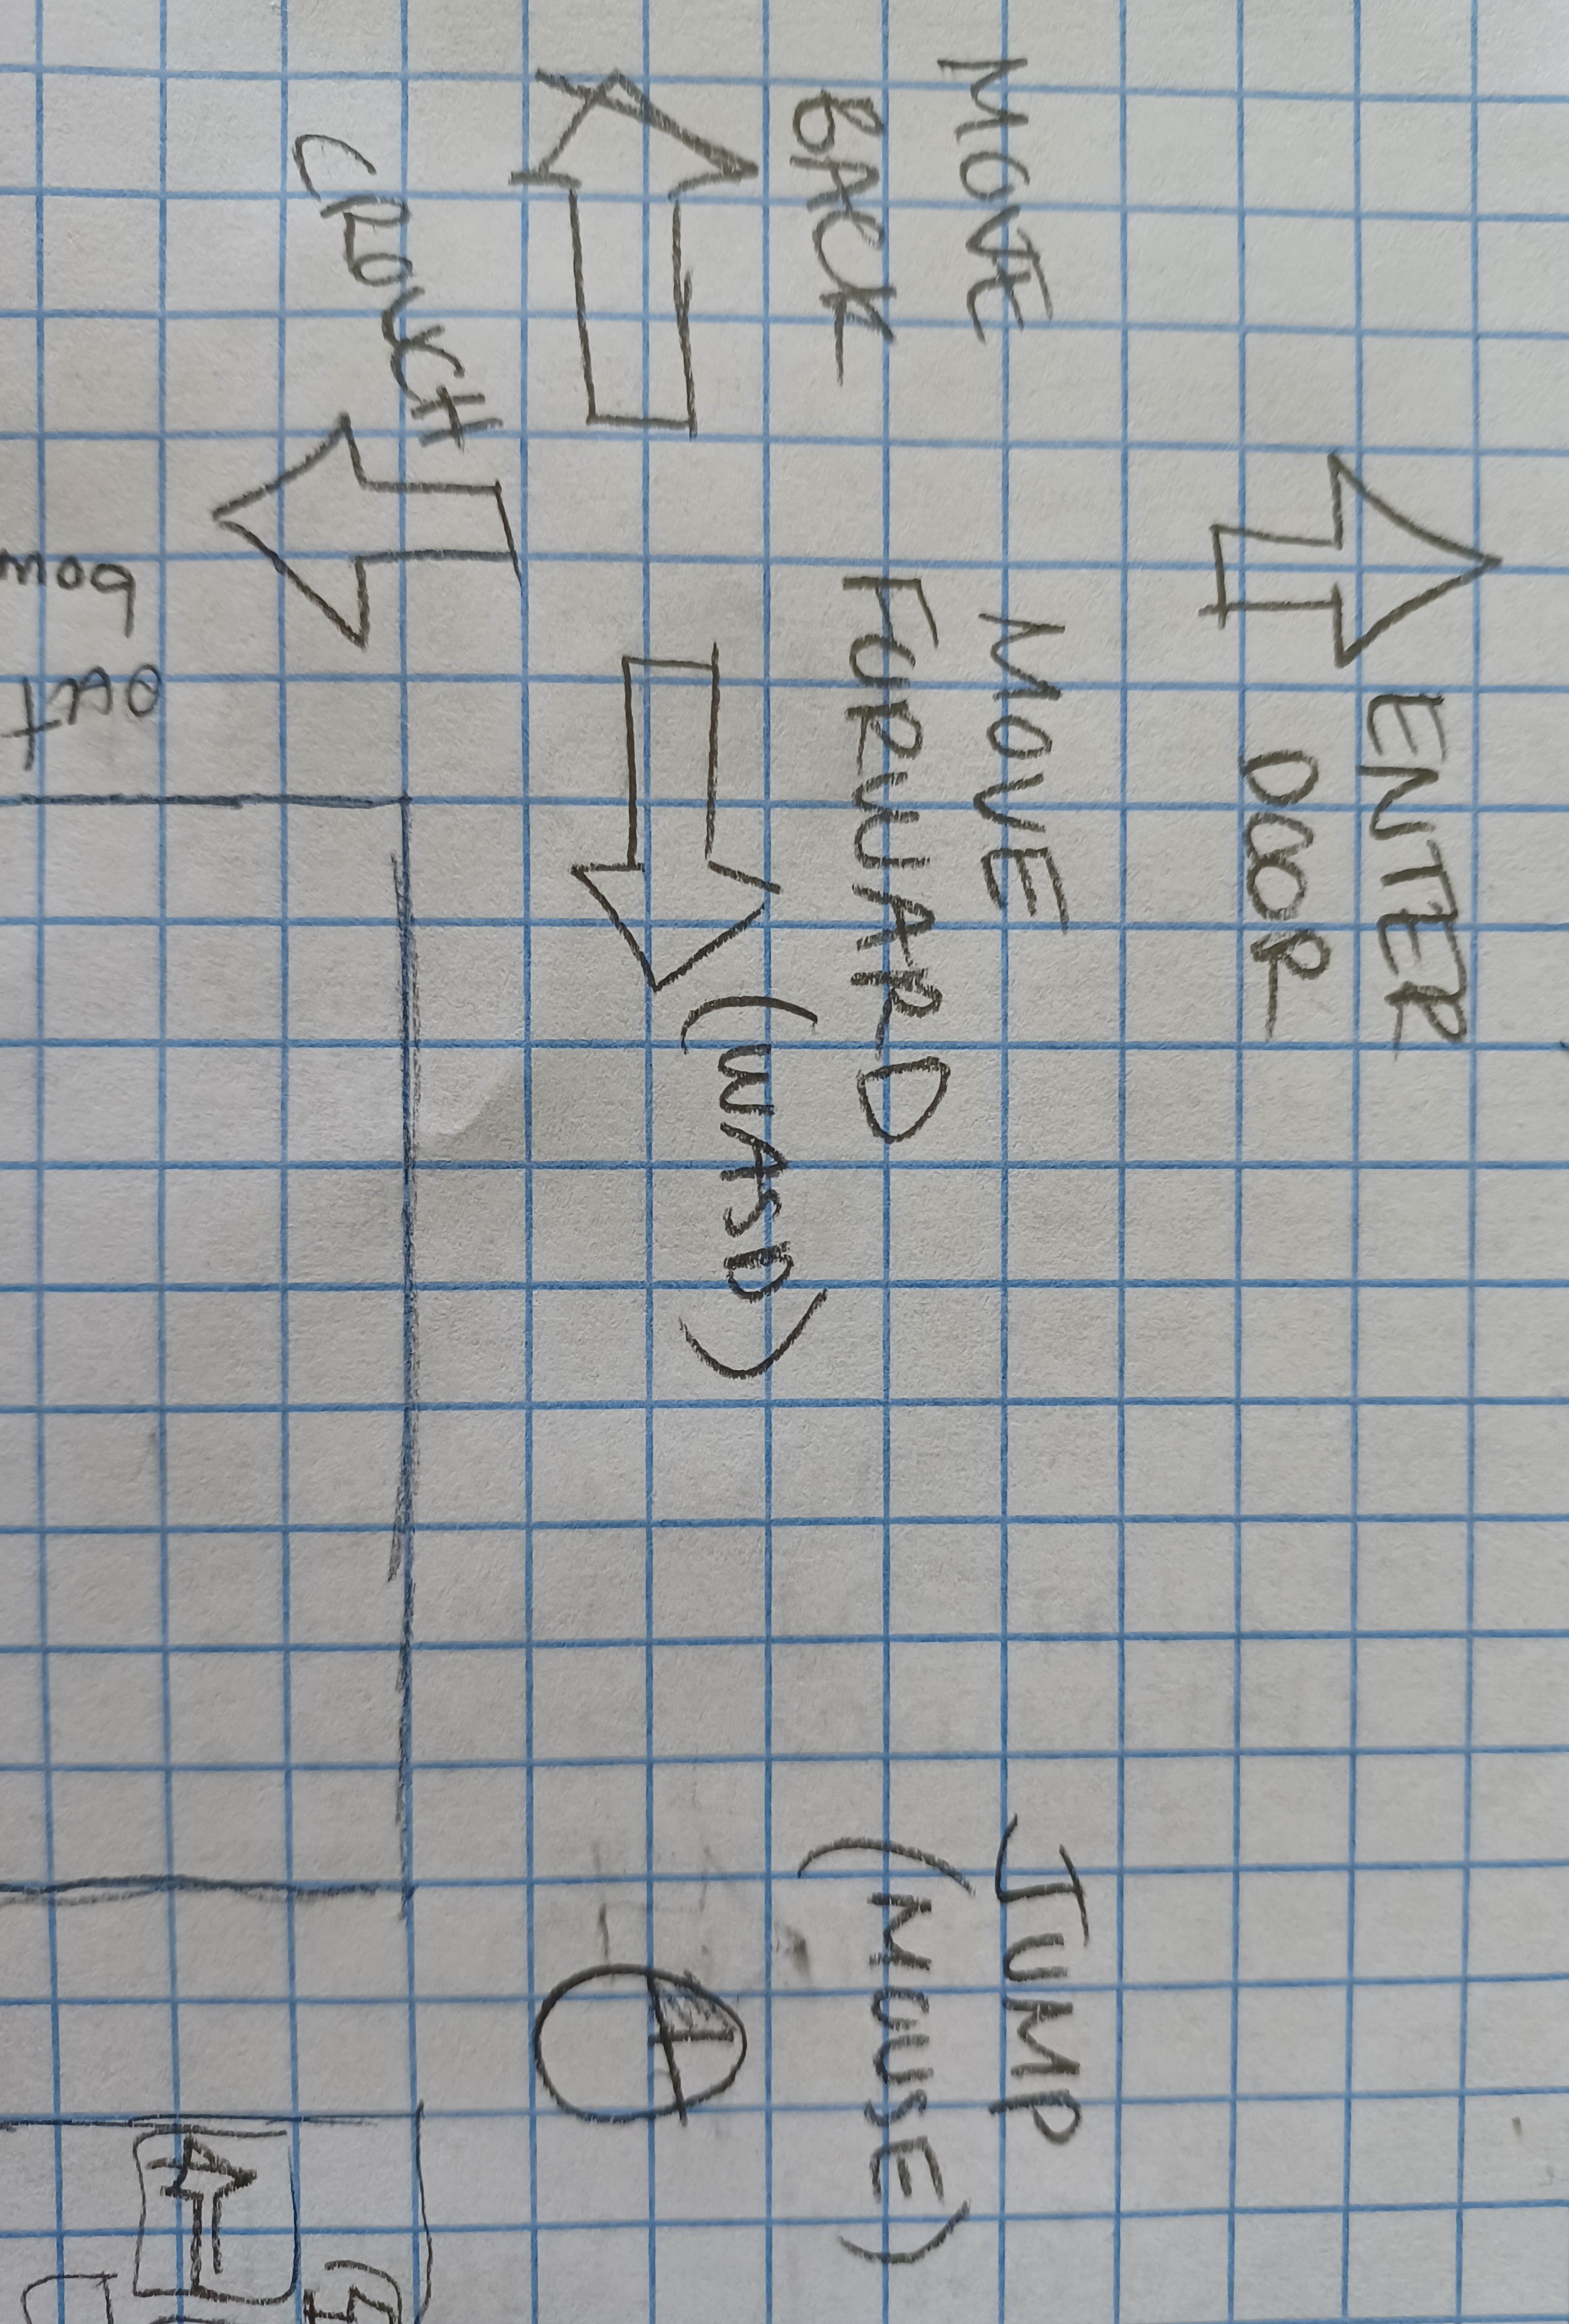 ENTER
DOOR
MOVE
BACK
MOVE
FORWARD
(WASD)
CROUCH
JUMP
(MOUSE)
out